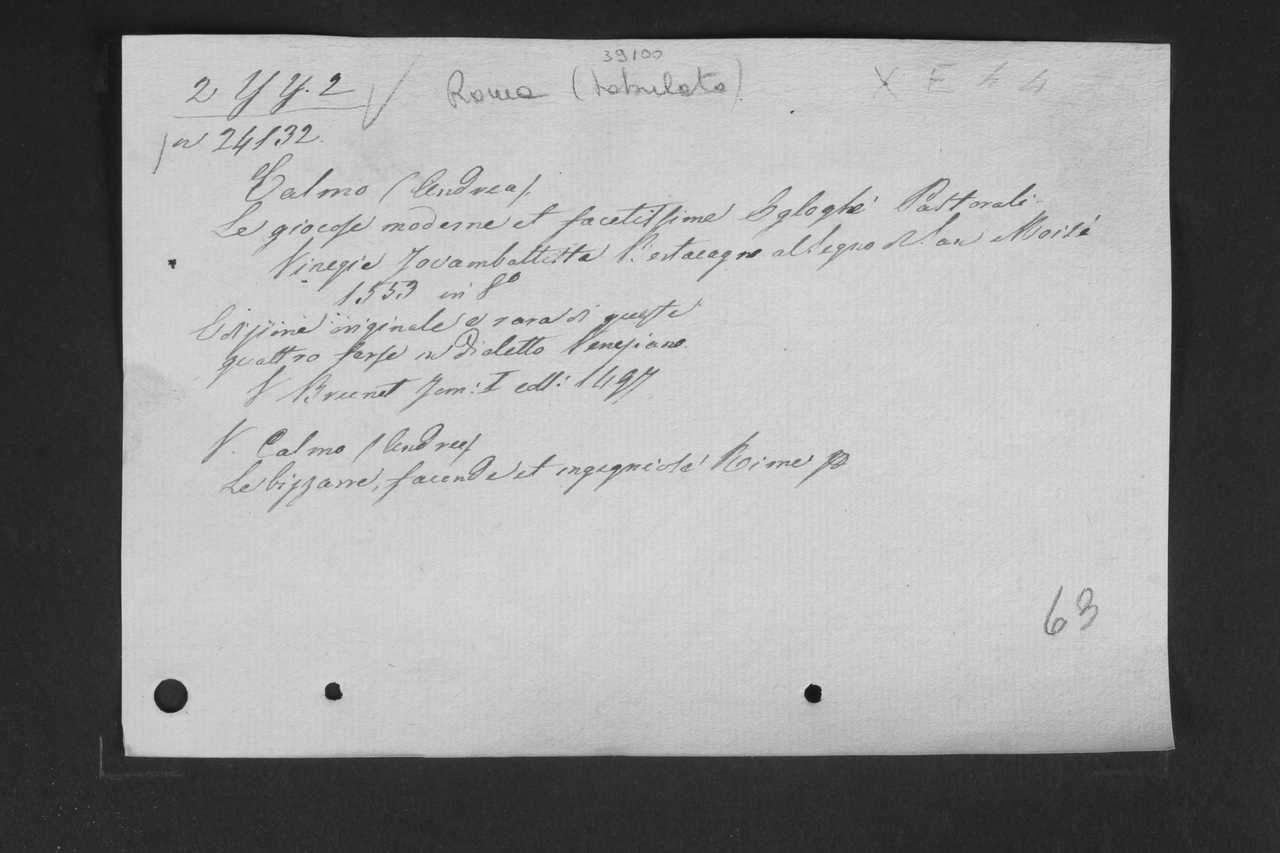 39100
2 Y Y. 2 Roma (tabulato) X E 4 4
n 24132.
Calmo (Andrea)
Le giocose moderne et facetissime Egloghe Pastorali.
Vinegia Jovambattista Bertacagno al segno di san Moisé
1553 in 8º
Edizione originale e rara di queste
quattro farse in Dialetto Veneziano.
V Brunet Tom: I coll: 1497
V. Calmo (Andrea)
Le bizzarre, faconde et ingegniose Rime
63